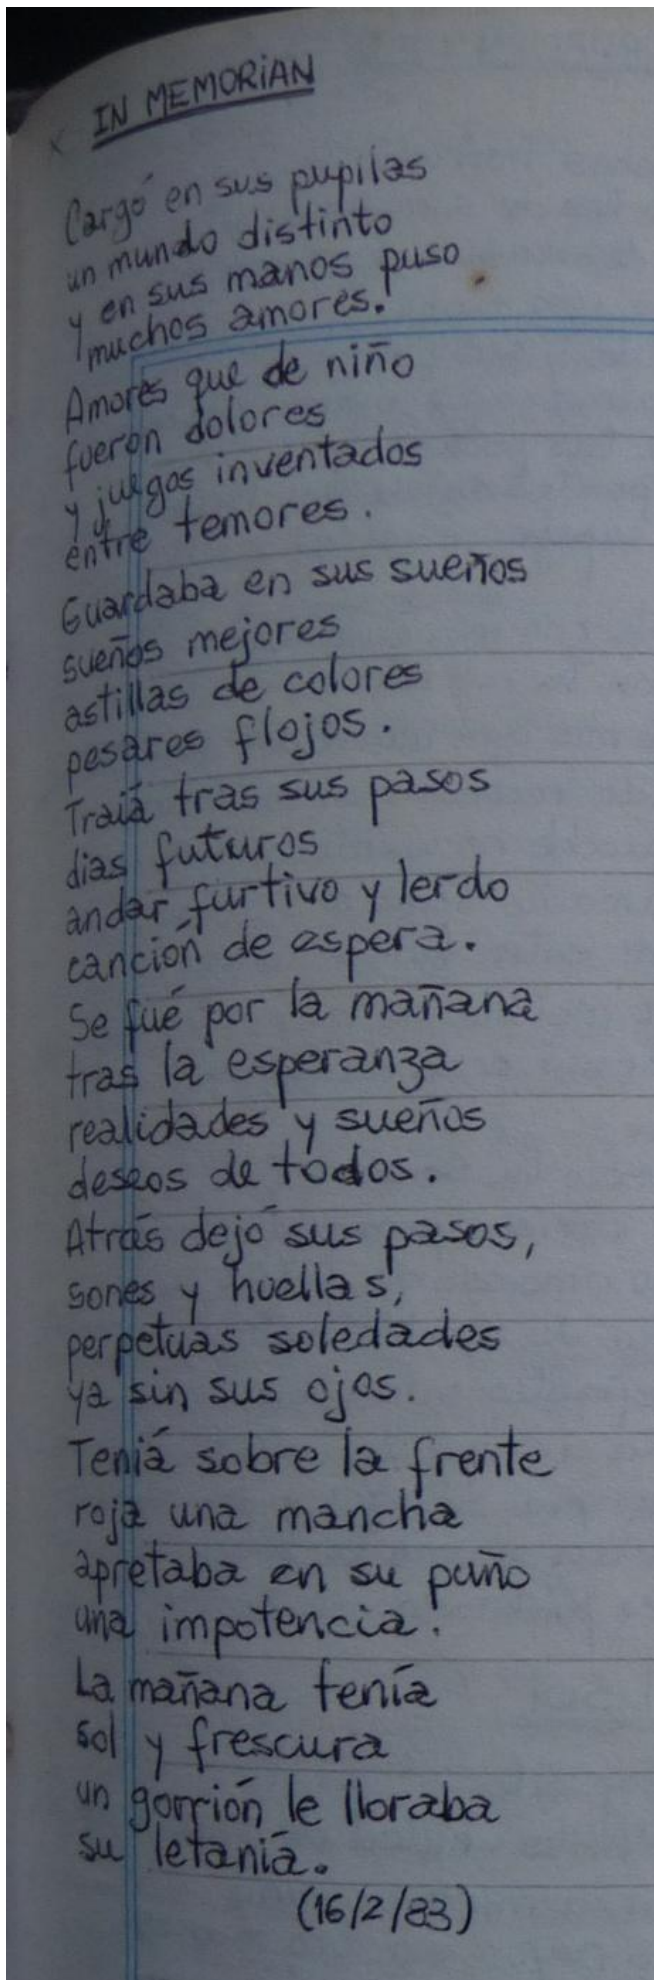 IN MEMORIAN
Cargó en sus pupilas
un mundo distinto
y en sus manos puso
muchos amores.
Amores que de niño
fueron dolores
y juegos inventados
entre temores.
Guardaba en sus sueños
sueños mejores
astillas de colores
pesares flojos.
Traiá tras sus pasos
dias futuros
andar furtivo y lerdo
canción de espera.
Se fué por la mañana
tras la esperanza
realidades y sueños
deseos de todos.
Atrás dejó sus pasos,
sones y huellas,
perpetuas soledades
ya sin sus ojos.
Teniá sobre la frente
roja una mancha
apretaba en su puño
una impotencia.
La mañana tenía
sol y frescura
un gorrión le lloraba
su letaniá.
(16/2/83)